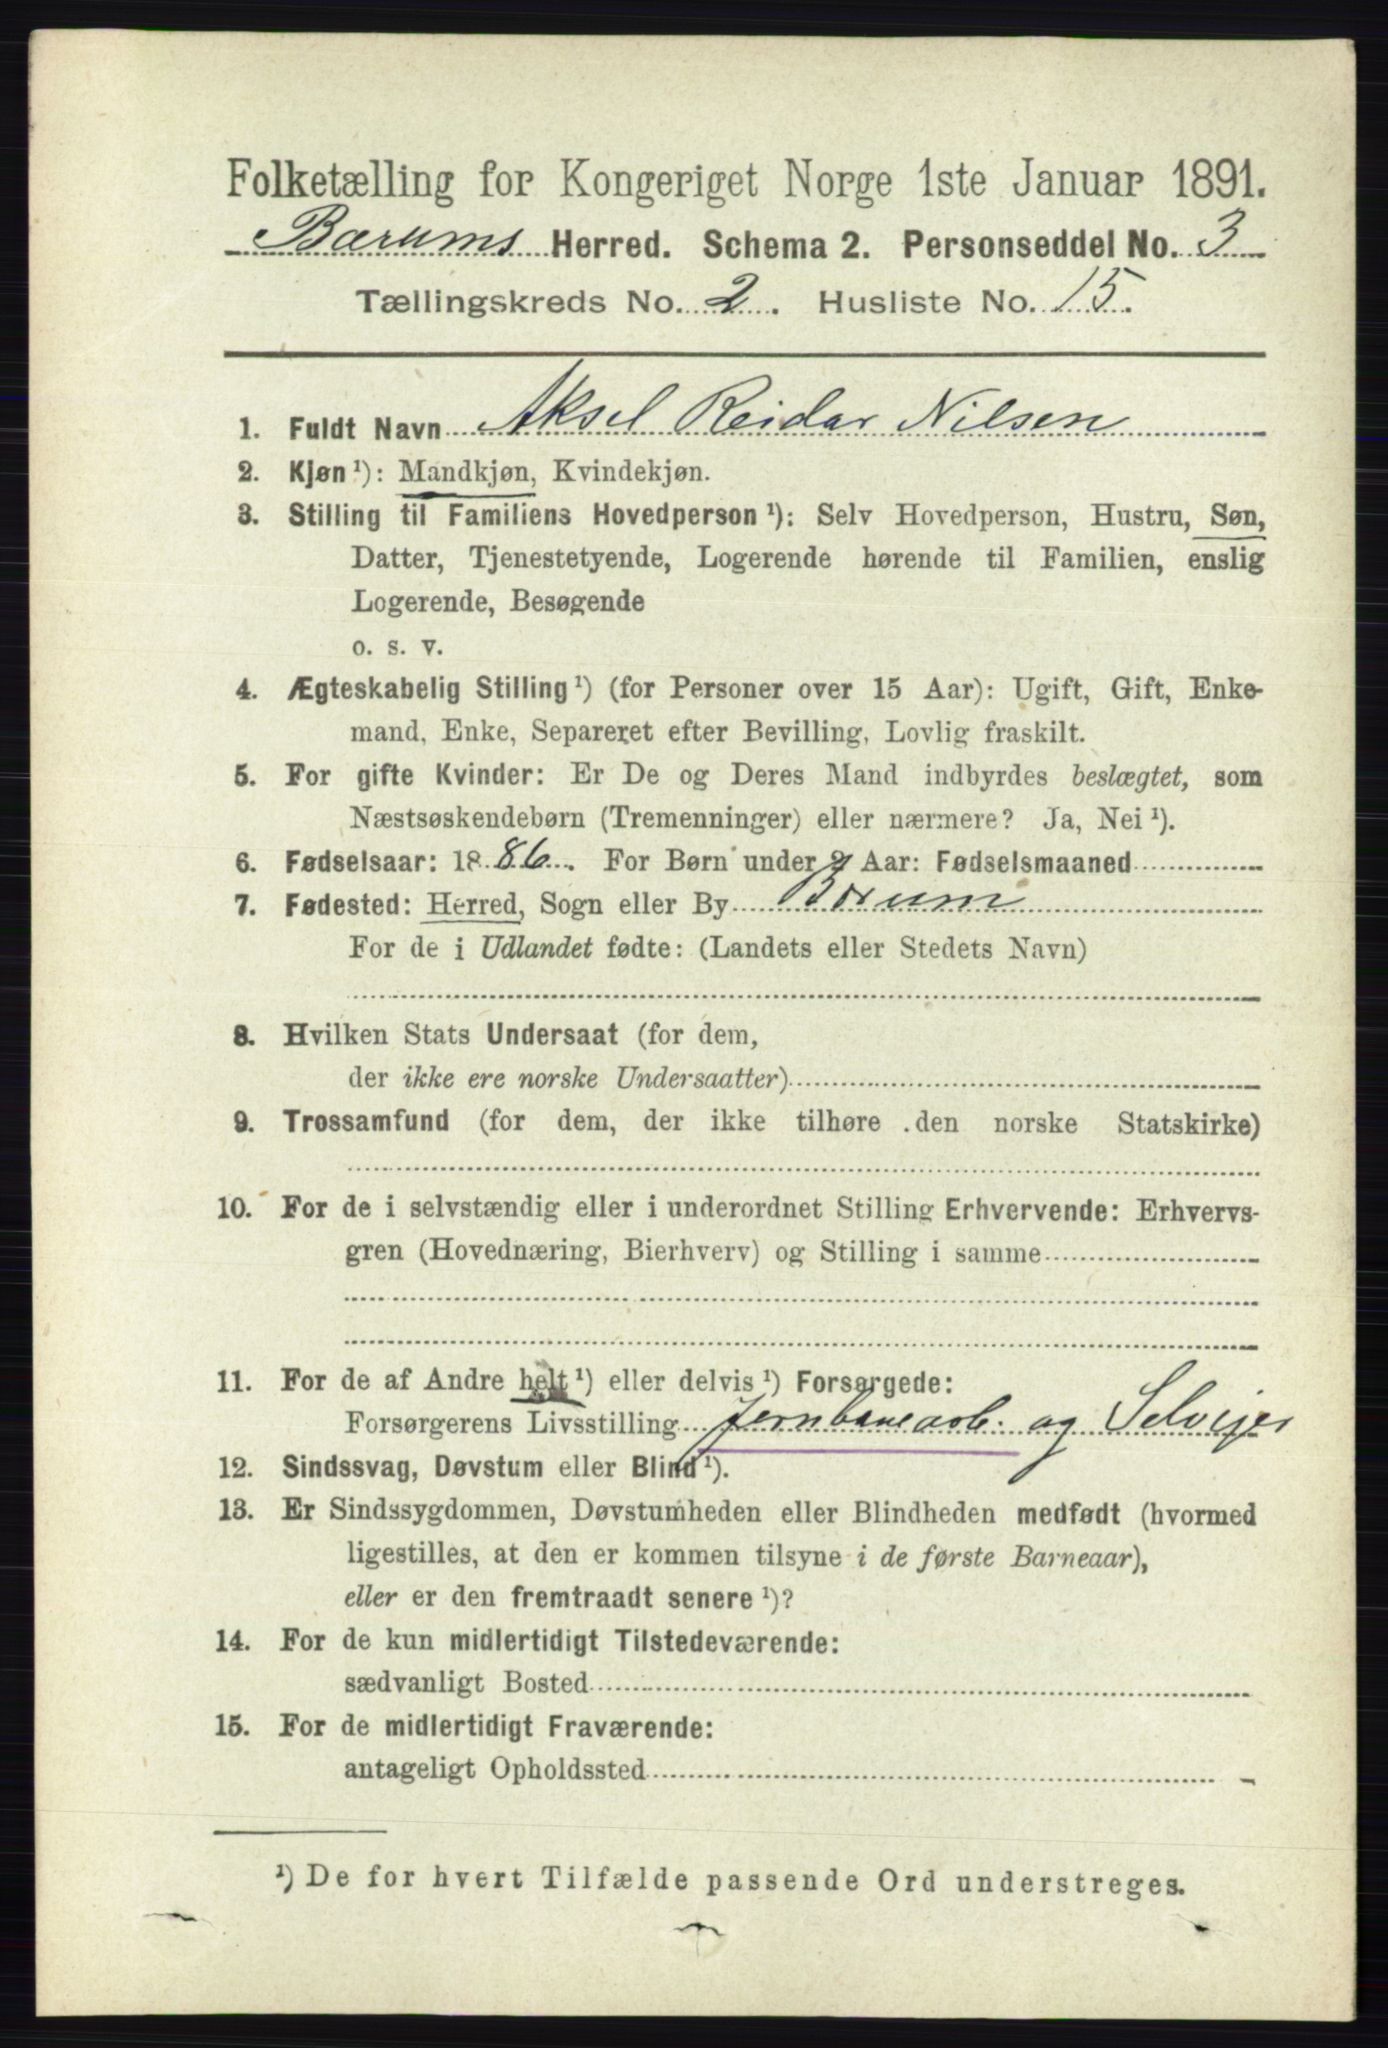 Folketælling for Kongeriget Norge 1ste Januar 1891.
Bærums Herred. Schema 2. Personseddel No. 3
Tællingskreds No. 2. Husliste No. 15.
1. Fuldt Navn Aksel Reidar Nilsen
2. Kjøn ¹): Mandkjøn, Kvindekjøn.
3. Stilling til Familiens Hovedperson ¹): Selv Hovedperson, Hustru, Søn,
Datter, Tjenestetyende, Logerende hørende til Familien, enslig
Logerende, Besøgende
o. s. v.
4. Ægteskabelig Stilling ¹) (for Personer over 15 Aar): Ugift, Gift, Enke-
mand, Enke, Separeret efter Bevilling, Lovlig fraskilt.
5. For gifte Kvinder: Er De og Deres Mand indbyrdes beslægtet, som
Næstsøskendebørn (Tremenninger) eller nærmere? Ja, Nei ¹).
6. Fødselsaar: 1886. For Børn under 2 Aar: Fødselsmaaned
7. Fødested: Herred, Sogn eller By Bærum
For de i Udlandet fødte: (Landets eller Stedets Navn)
8. Hvilken Stats Undersaat (for dem,
der ikke ere norske Undersaatter)
9. Trossamfund (for dem, der ikke tilhøre den norske Statskirke)
10. For de i selvstændig eller i underordnet Stilling Erhvervende: Erhvervs-
gren (Hovednæring, Bierhverv) og Stilling i samme
11. For de af Andre helt ¹) eller delvis ¹) Forsørgede:
Forsørgerens Livsstilling Jernbanearb. og Selveier
12. Sindssvag, Døvstum eller Blind ¹).
13. Er Sindssygdommen, Døvstumheden eller Blindheden medfødt (hvormed
ligestilles, at den er kommen tilsyne i de første Barneaar),
eller er den fremtraadt senere ¹)?
14. For de kun midlertidigt Tilstedeværende:
sædvanligt Bosted
15. For de midlertidigt Fraværende:
antageligt Opholdssted
¹) De for hvert Tilfælde passende Ord understreges.